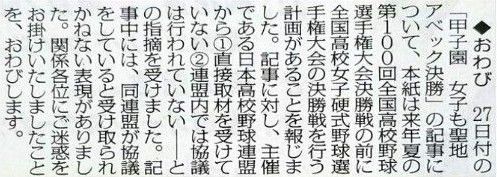 ◆おわび　27日付の
「甲子園　女子も聖地
アベック決勝」の記事に
ついて、本紙は来年夏の
第100回全国高校野球
選手権大会決勝戦の前に
全国高校女子硬式野球選
手権大会の決勝戦を行う
計画があることを報じま
した。記事に対し、主催
である日本高校野球連盟
から①直接取材を受けて
いない②連盟内では協議
は行われていない――と
の指摘を受けました。記
事中には、同連盟が協議
をしていると受け取られ
かねない表現がありまし
た。関係各位にご迷惑を
お掛けいたしましたこと
を、おわびします。